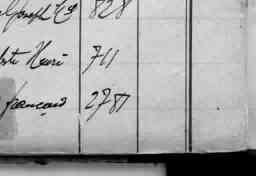 Joseph Cs 828
Henri 711
françois 2787